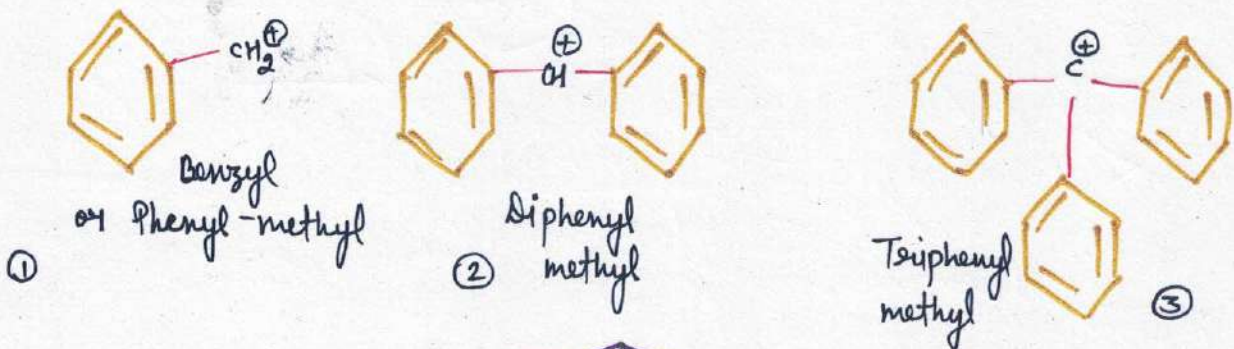 CH2⊕
⊕
CH
⊕
C
Benzyl
or Phenyl-methyl
①
Diphenyl
methyl
②
Triphenyl
methyl
③